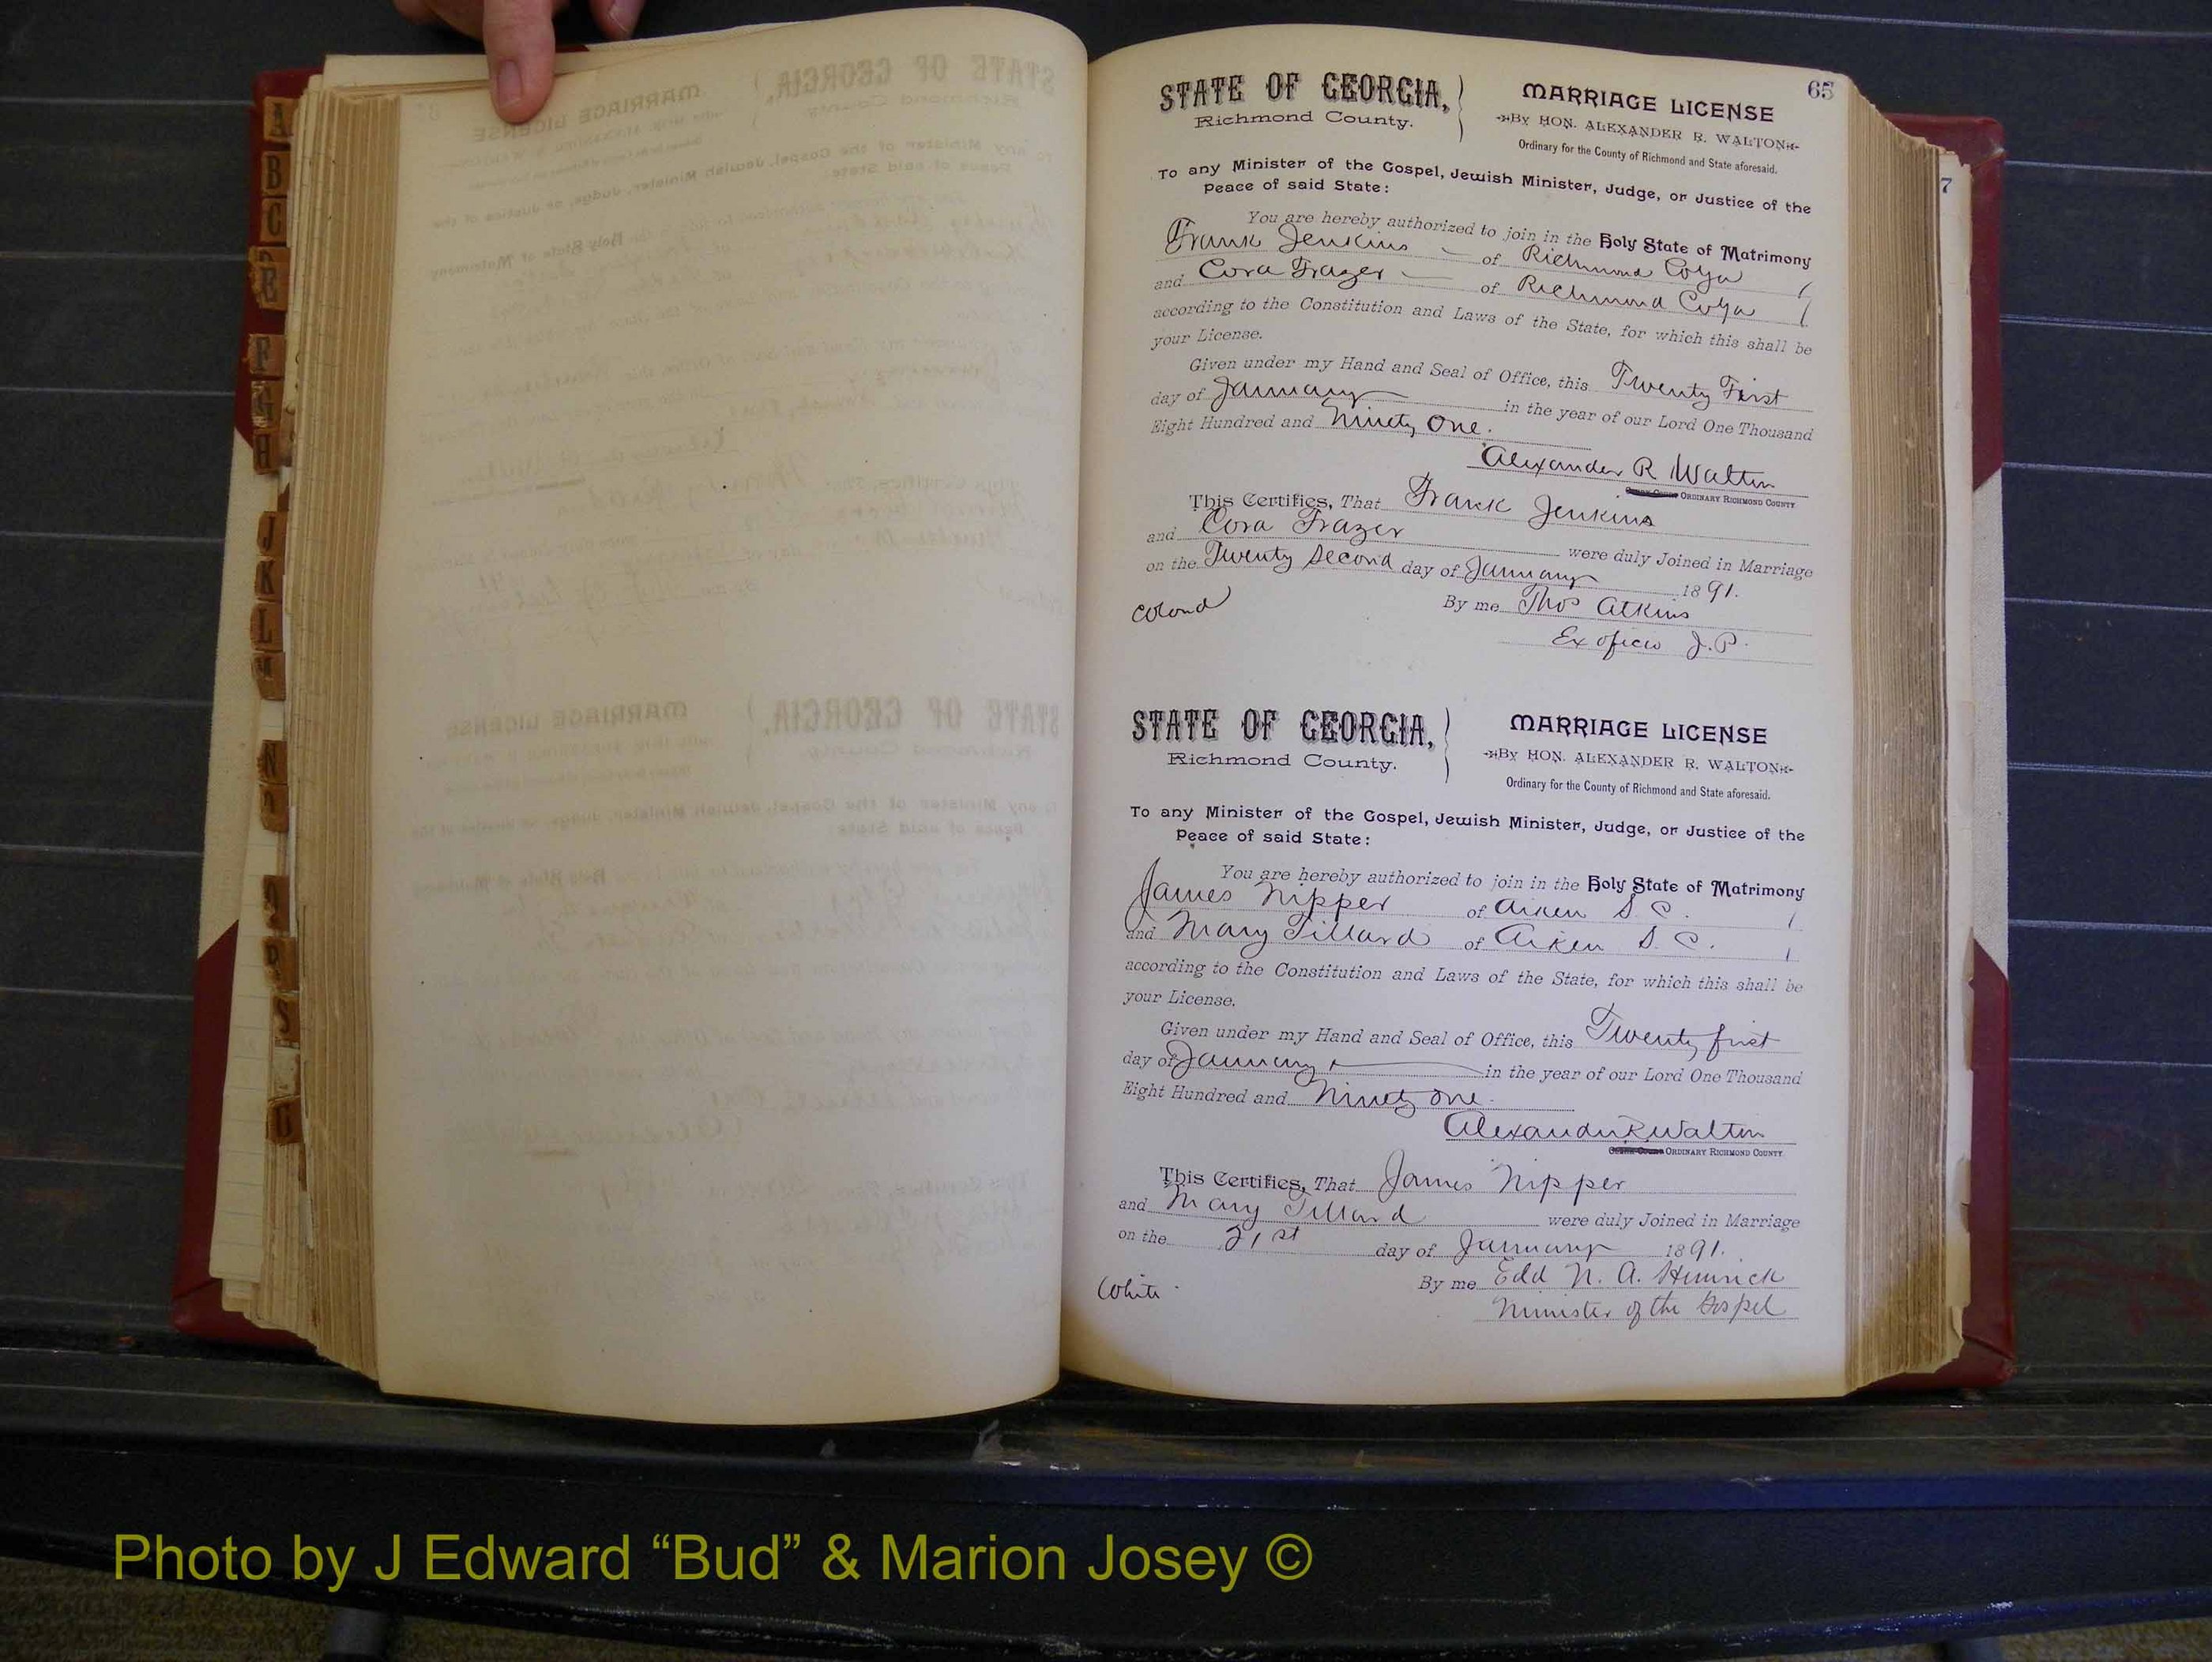 65
STATE OF GEORGIA,
Richmond County.
MARRIAGE LICENSE
By HON. ALEXANDER R. WALTON
Ordinary for the County of Richmond and State aforesaid.
To any Minister of the Gospel, Jewish Minister, Judge, or Justice of the
Peace of said State:
You are hereby authorized to join in the Holy State of Matrimony
Frank Jenkins of Richmond Co Ga
and Cora Frazer of Richmond Co Ga
according to the Constitution and Laws of the State, for which this shall be
your License.
Given under my Hand and Seal of Office, this Twenty First
day of January in the year of our Lord One Thousand
Eight Hundred and Ninety One.
Alexander R Walton
ORDINARY RICHMOND COUNTY
This Certifies, That Frank Jenkins
and Cora Frazer were duly Joined in Marriage
on the Twenty Second day of January 1891.
By me Thos Atkins
Ex oficio J.P.
Colored
STATE OF GEORGIA,
Richmond County.
MARRIAGE LICENSE
By HON. ALEXANDER R. WALTON
Ordinary for the County of Richmond and State aforesaid.
To any Minister of the Gospel, Jewish Minister, Judge, or Justice of the
Peace of said State:
You are hereby authorized to join in the Holy State of Matrimony
James Nipper of Aiken S. C.
and Mary Tillard of Aiken S. C.
according to the Constitution and Laws of the State, for which this shall be
your License.
Given under my Hand and Seal of Office, this Twenty first
day of January in the year of our Lord One Thousand
Eight Hundred and Ninety one.
Alexander R Walton
ORDINARY RICHMOND COUNTY.
This Certifies, That James Nipper
and Mary Tillard were duly Joined in Marriage
on the 21st day of January 1891.
By me Edd N. A.
Minister of the Gospel
White
7
A
B
C
E
F
G
H
J
K
L
M
N
P
S
Photo by J Edward “Bud” & Marion Josey ©